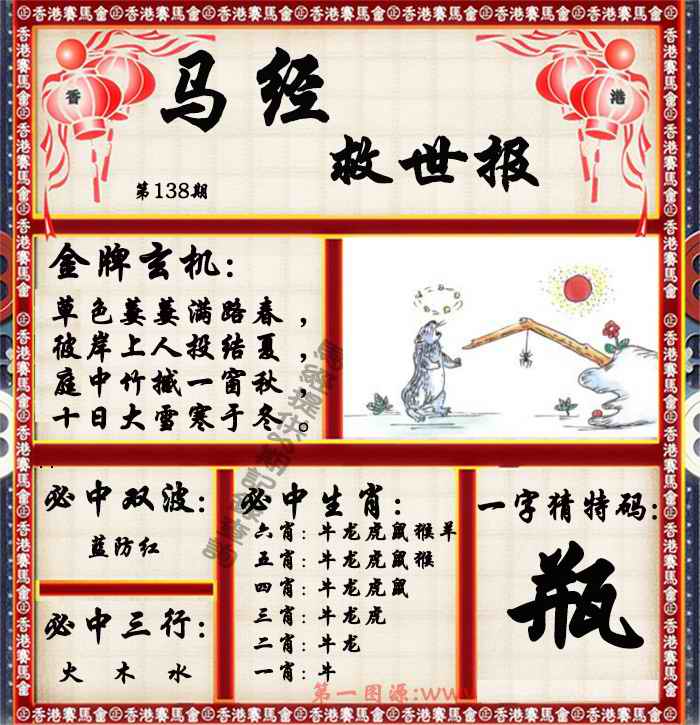 香港賽馬會
香 港
马经
救世报
第138期
金牌玄机：
草色萋萋满路春，
彼岸上人投结夏，
庭中竹撼一窗秋，
十日大雪寒于冬。
必中双波：
蓝防红
必中三行：
火 木 水
必中生肖：
六肖：牛龙虎鼠猴羊
五肖：牛龙虎鼠猴
四肖：牛龙虎鼠
三肖：牛龙虎
二肖：牛龙
一肖：牛
一字猜特码：
瓶
第一图源:www